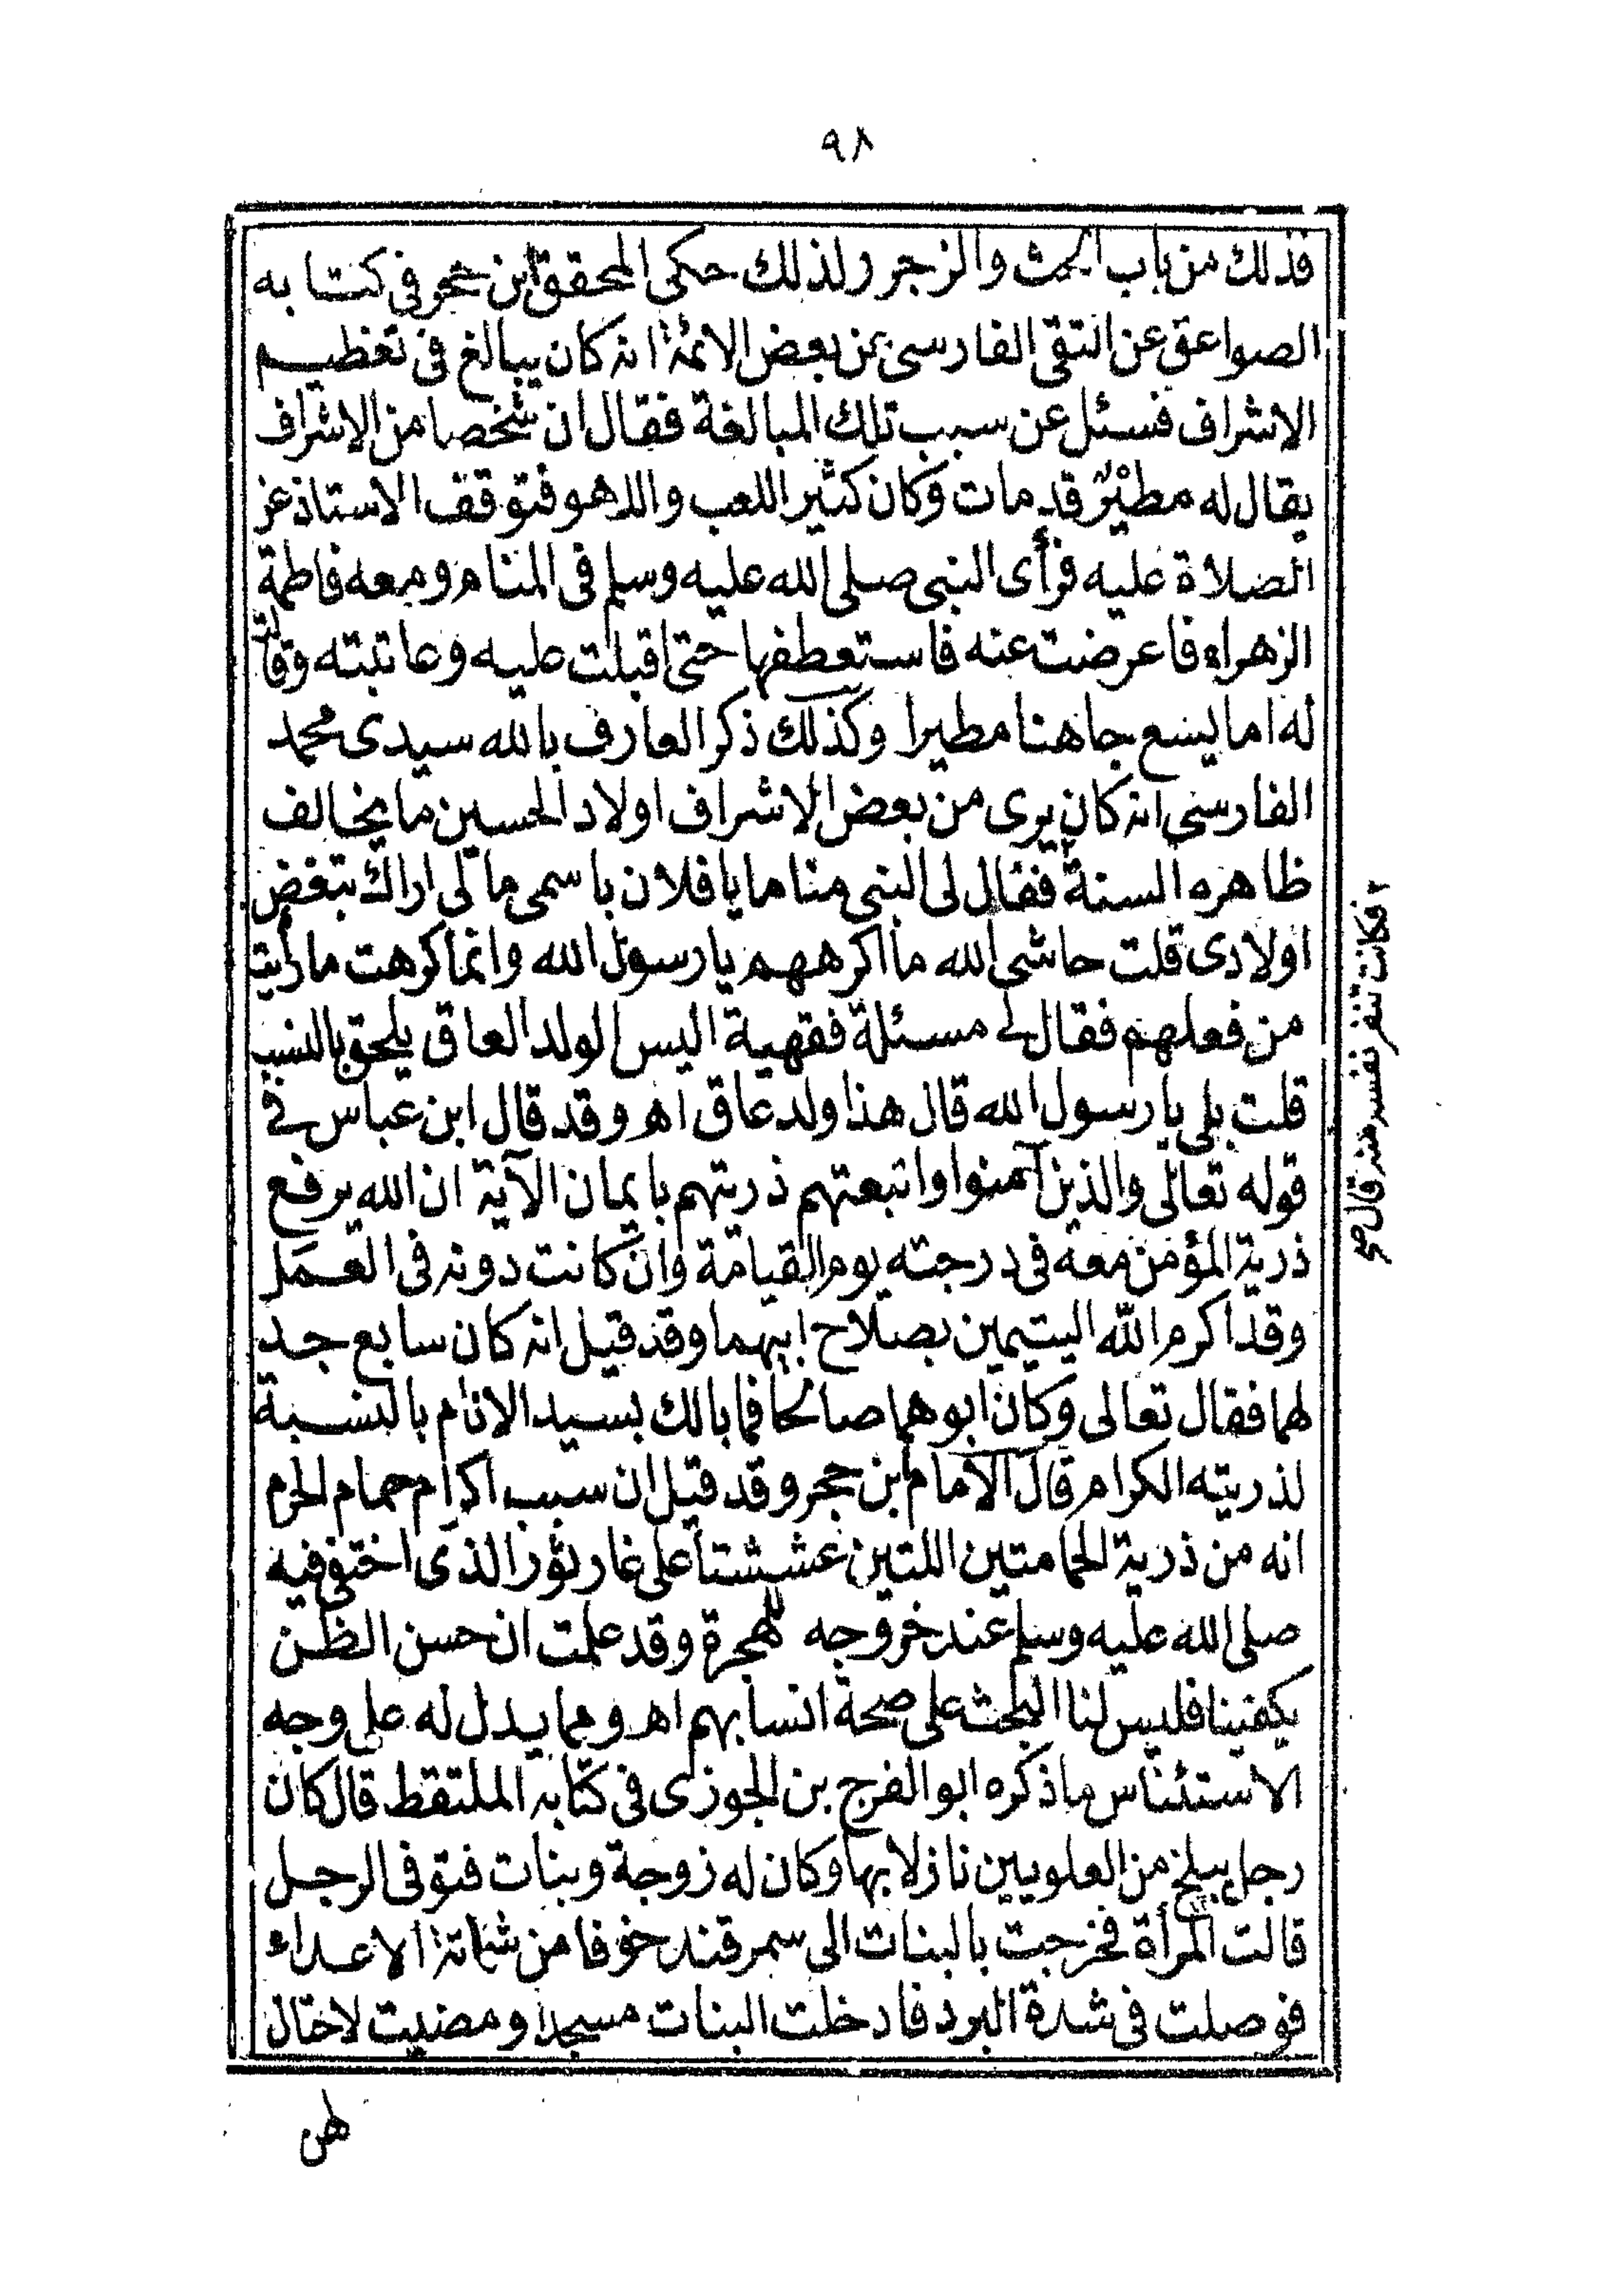 ٩٨
فذلك من باب الحث والزجر ولذلك حكى المحقق ابن حجر فى كتابه
الصواعق عن التقى الفارسى عن بعض الائمة انه كان يبالغ فى تعظيم
الاشراف فسئل عن سبب تلك المبالغة فقال ان شخصا من الاشراف
يقال له مطير قد مات وكان كثير اللعب واللهو فتوقف الاستاذ عن
الصلاة عليه فرأى النبى صلى الله عليه وسلم فى المنام ومعه فاطمة
الزهراء فاعرضت عنه فاستعطفها حتى اقبلت عليه وعاتبته وقالت
له اما يسع جاهنا مطيرا وكذلك ذكر العارف بالله سيدى محمد
الفارسى انه كان يرى من بعض الاشراف اولاد الحسين ما يخالف
ظاهره السنة ٢ فقال لى النبى مناما يا فلان باسمى ما لى اراك تبغض
اولادى قلت حاشى الله ما اكرههم يا رسول الله وانما كرهت ما رأيت
من فعلهم فقال لى مسئلة فقهية اليس الولد العاق يلحق بالنسب
قلت بلى يا رسول الله قال هذا ولد عاق اه وقد قال ابن عباس فى
قوله تعالى والذين آمنوا واتبعتهم ذريتهم بايمان الآية ان الله يرفع
ذرية المؤمن معه فى درجته يوم القيامة وان كانت دونه فى العمل
وقد اكرم الله اليتيمين بصلاح ابيهما وقد قيل انه كان سابع جد
لهما فقال تعالى وكان ابوهما صالحا فما بالك بسيد الانام بالنسبة
لذريته الكرام قال الامام ابن حجر وقد قيل ان سبب اكرام حمام الحرم
انه من ذرية الحمامتين اللتين عششتا على غار ثور الذى اختفى فيه
صلى الله عليه وسلم عند خروجه للهجرة وقد علمت ان حسن الظن
يكفينا فليس لنا البحث على صحة انسابهم اه ومما يدل له على وجه
الاستئناس ما ذكره ابو الفرج بن الجوزى فى كتابه الملتقط قال كان
رجل ببلخ من العلويين نازلا بها وكان له زوجة وبنات فتوفى الرجل
قالت المرأة فخرجت بالبنات الى سمرقند خوفا من شماتة الاعداء
فوصلت فى شدة البرد فادخلت البنات مسجدا ومضيت لاحتال
لهن
٢ فكانت تنفر نفسه منه قال صح